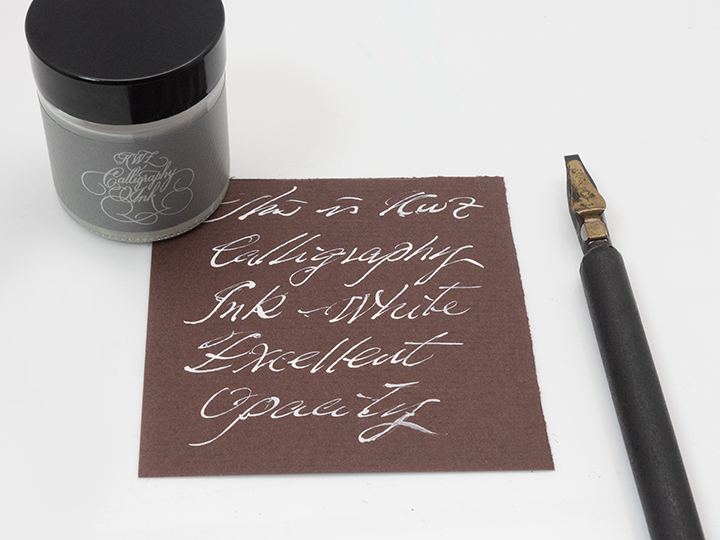 KWZ
Calligraphy
Ink
This is KWZ
Calligraphy
Ink - White
Excellent
Opacity